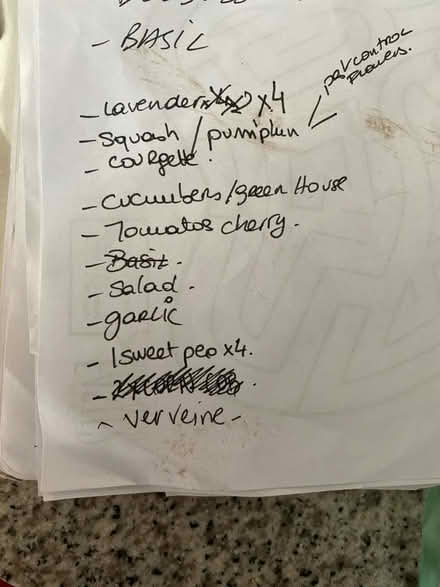 - BASIL
- Lavender x4
- Squash / pumpkin
flowers.
- courgette.
- Cucumbers/green House
- Tomatos cherry.
- Basil.
- Salad.
- garlic
- 1 sweet peo x4.
- verveine -